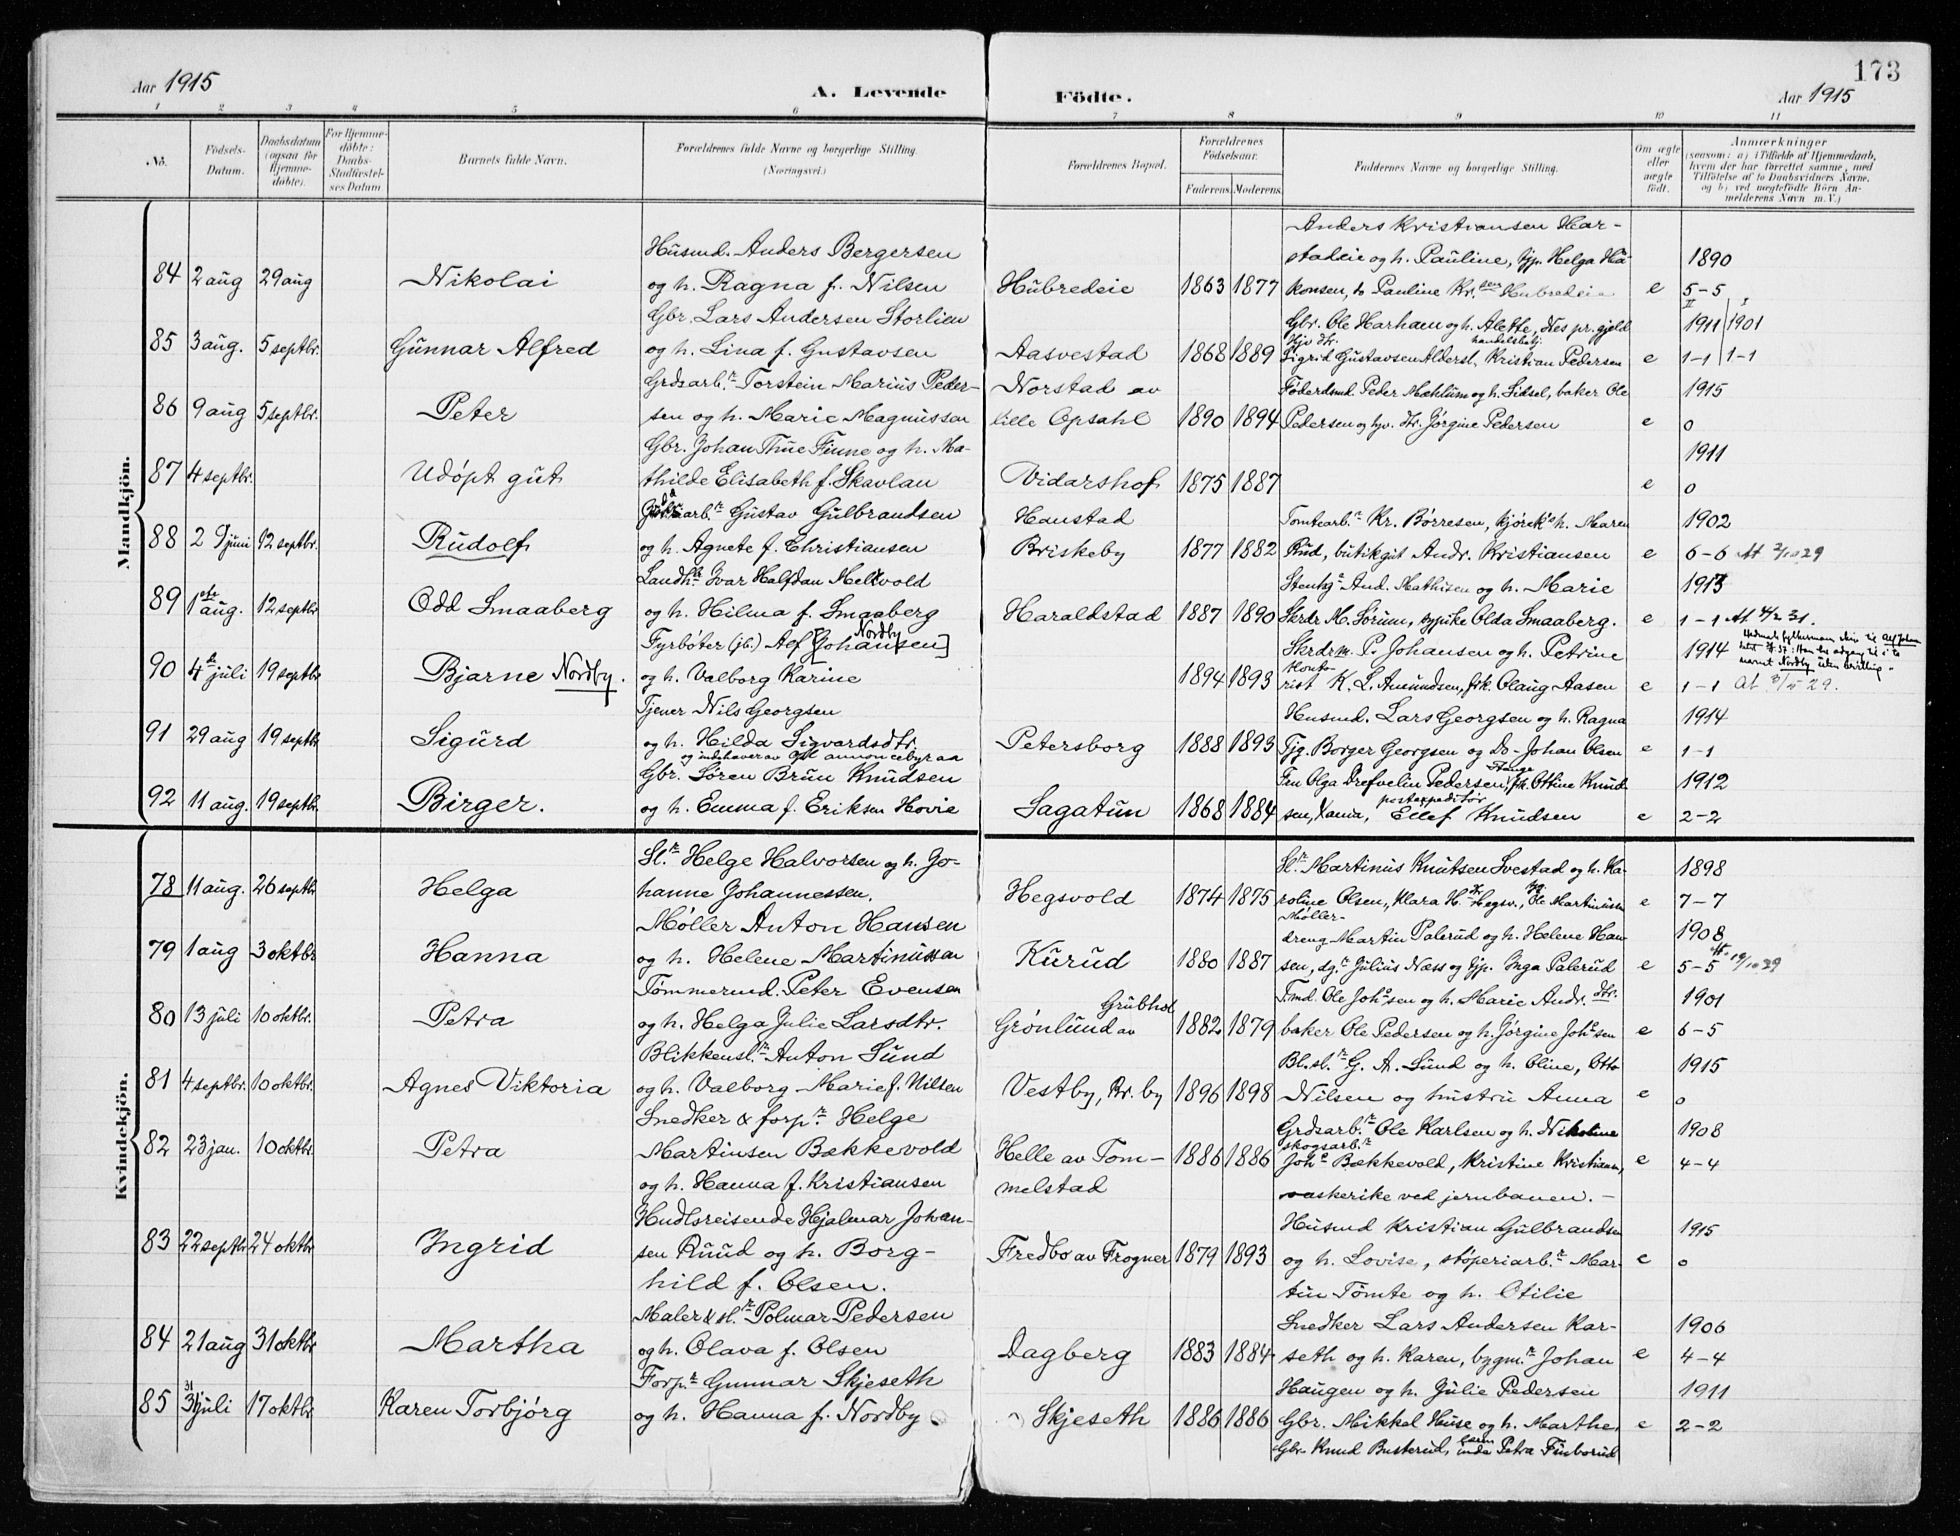 Aar 1915
A. Levende
Födte.
173
Aar 1915
1 2 3 4 5 6 7 8 9 10 11
No.
Födsels-
Datum.
Daabsdatum
(ogsaa for
Hjemme-
döbte).
For Hjemme-
döbte:
Daabs-
Stadfæstel-
ses Datum
Barnets fulde Navn.
Forældrenes fulde Navne og borgerlige Stilling.
(Næringsvei.)
Forældrenes Bopæl.
Forældrenes
Födselsaar.
Faderens. Moderens.
Faddernes Navne og borgerlige Stilling.
Om ægte
eller
uægte
födt.
Anmærkninger
(saasom: a) i Tilfælde af Hjemmedaab,
hvem der har forrettet samme, med
Tilföielse af to Daabsvidners Navne,
og b) ved uægtefödte Börn An-
melderens Navn m.V.)
Mandkjön.
84 2 aug 29 aug Nikolai
Husmd. Anders Bergersen
og h. Ragna f. Nilsen
Hubredeie 1863 1877
Anders Kristiansen Har-
stadeie og h. Pauline, tjp. Helga Hå-
konsen, do Pauline Kr.sen Hubredeie
e 1890
5-5
85 3 aug. 5 septbr. Gunnar Alfred
Gbr. Lars Andersen Storlien
og h. Lina f. Gustavsen
Aasvestad 1868 1889
Gbr. Ole Harhaem og h. Alette, Nes pr.gjeld
hjv. dtr. handelsbetj.
Sigrid Gustavsen Alderst, Kristian Pedersen
e II I
1911 1901
1-1 1-1
86 9 aug 5 septbr. Peter
Grdsarb.r Torstein Marius Peder-
sen og h. Marie Magnussen
Norstad av
lille Opsahl 1890 1894
Föderdsmd. Peder Mæhlum og h. Sidsel, baker Ole
Pedersen og hjv. dtr. Jørgine Pedersen
e 1915
0
87 4 septbr. Udøpt gut
Gbr. Johan Thue Finne og h. Ma-
thilde Elisabeth f. Skavlan
Vidarshof 1875 1887
e 1911
0
88 2 juni 12 septbr. Rudolf
Gustav Gulbrandsen
og h. Agnete f. Christiansen
Hanstad
Briskeby 1877 1882
Tomtearb.r Kr. Børresen, kjörek's h. Maren
Rud, butikgut Andr. Kristiansen
e 1902
6-6 At 2/10 29
89 1 aug. 12 septbr Odd Smaaberg
Landh. Ivar Halfdan Meldvold
og h. Hilma f. Smaaberg
Haraldstad 1887 1890
Stenhg.r And. Mathisen og h. Marie
Skrdr M. Sörum, typike Olda Smaaberg.
e 1913
1-1 At. 4/2 31.
90 4 juli 19 septbr Bjarne Nordby.
Fyrbøter (jb.) Alf [Johansen] Nordby
og h. Valborg Karine
1894 1893
Skrdrm. P. Johansen og h. Petrine
Kontorist K. L. Amundsen, frk. Olaug Aasen
e 1914
1-1 At 3/5 29.
91 29 aug 19 septbr Sigurd
Tjener Nils Georgsen
og h. Hilda Sigvardsdtr.
Petersborg 1888 1893
Husmd. Lars Georgsen og h. Ragna
Tjg. Borger Georgsen og Do- Johan Olsen
e 1914
1-1
92 11 aug. 19 septbr. Birger.
og indehaver av Opl. annoncebyraa
Gbr. Sören Brun Knudsen
og h. Emma f. Eriksen Hovie
Sagatun 1868 1884
Fru Olga Drefvelin Pedersen, Stange frk. Ottine Knud-
sen, Xania, postexpeditör Ellef Knudsen
e 1912
2-2
Kvindekjön.
78 11 aug. 26 septbr Helga
Sl.r Helge Halvorsen og h. Jo-
hanne Johannessen.
Hegsvold 1874 1875
Sl.r Martinus Knutsen Svestad og h. Ka-
roline Olsen, Klara H.dtr Hegsv., Tjg. Ole Martinussen
e 1898
7-7
79 1 aug 3 oktbr Hanna
Møller Anton Hansen
og h. Helene Martinussen
Kurud 1880 1887
Møller-
dreng Martin Palerud og h. Helene Han-
sen, dg.r Julius Næss og tjp. Inga Palerud
e 1908
5-5 At. 19/10 39
80 13 juli 10 oktbr. Petra
Tömmermd. Peter Evensen
og h. Helga Julie Larsdtr.
Grubhol
Grønlund av 1882 1879
Tmd. Ole Joh.sen og h. Marie Andr. dtr.
baker Ole Pedersen og h. Jørgine Joh.sen
e 1901
6-5
81 4 septbr. 10 oktbr. Agnes Viktoria
Blikkensl.r Anton Sund
og h. Valborg Marie f. Nilsen
Vestby, Br. by 1896 1898
Bl.sl.r G. A. Sund og h. Oline, Otto
Nilsen og hustru Anna
e 1915
0
82 23 jan. 10 oktbr. Petra
Snedker & forp.r Helge
Martinsen Bækkevold
og h. Hanna f. Kristiansen
Helle av Tom-
melstad 1886 1886
Grdsarb.r Ole Karlsen og h. Nikoline
skogsarb.r
Joh.s Bækkevold, Kristine Kristians,
vaskerike ved jernbanen.-
e 1908
4-4
83 22 septbr 24 oktbr Ingrid
Hndlsreisende Hjalmar Johan-
sen Ruud og h. Borg-
hild f. Olsen.
Fredbo av Frogner 1879 1893
Husmd Kristian Gulbrandsen
og h. Lovise, støperiarb.r Mar-
tin Tömte og h. Otilie
e 1915
0
84 21 aug 31 oktbr Martha
Maler & sl.r Polmar Pedersen
og h. Olava f. Olsen
Dagberg 1883 1884
Snedker Lars Andersen Kar-
seth og h. Karen, bygm.r Johan
Haugen og h. Julie Pedersen
e 1906
4-4
85 31 juli 17 oktbr Karen Torbjörg
Forp.r Gunnar Skjeseth
og h. Hanna f. Nordby
Skjeseth 1886 1886
Gbr. Mikkel Huse og h. Marthe,
Gbr. Knud Busterud, Petra Finborud
e 1911
2-2